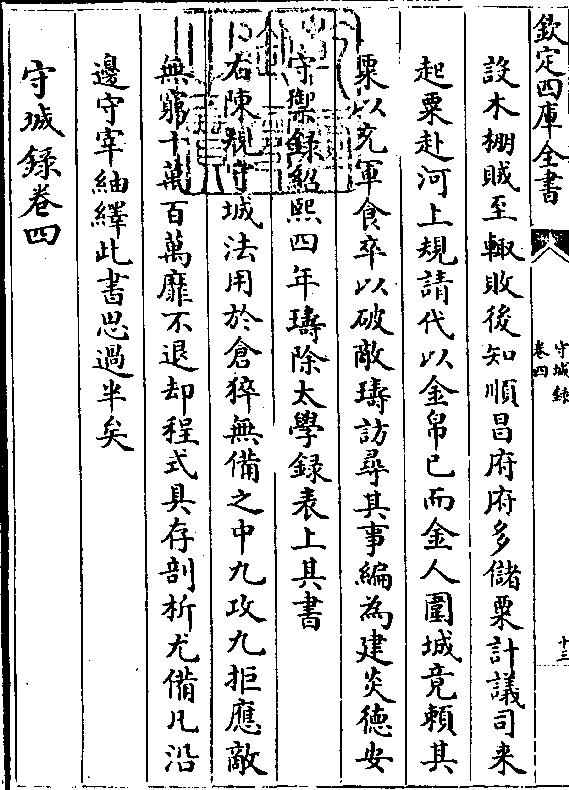 欽定四庫全書
守城録
卷四
十三
設木棚賊至輙敗後知順昌府府多儲粟計議司来
起粟赴河上規請代以金帛已而金人圍城竟頼其
粟以充軍食卒以破敵璹訪尋其事編為建炎德安
守禦録紹熙四年璹除太學録表上其書
右陳規守城法用於倉猝無備之中九攻九拒應敵
無窮十萬百萬靡不退却程式具存剖析尤備凡沿
邊守宰紬繹此書思過半矣
守城録卷四